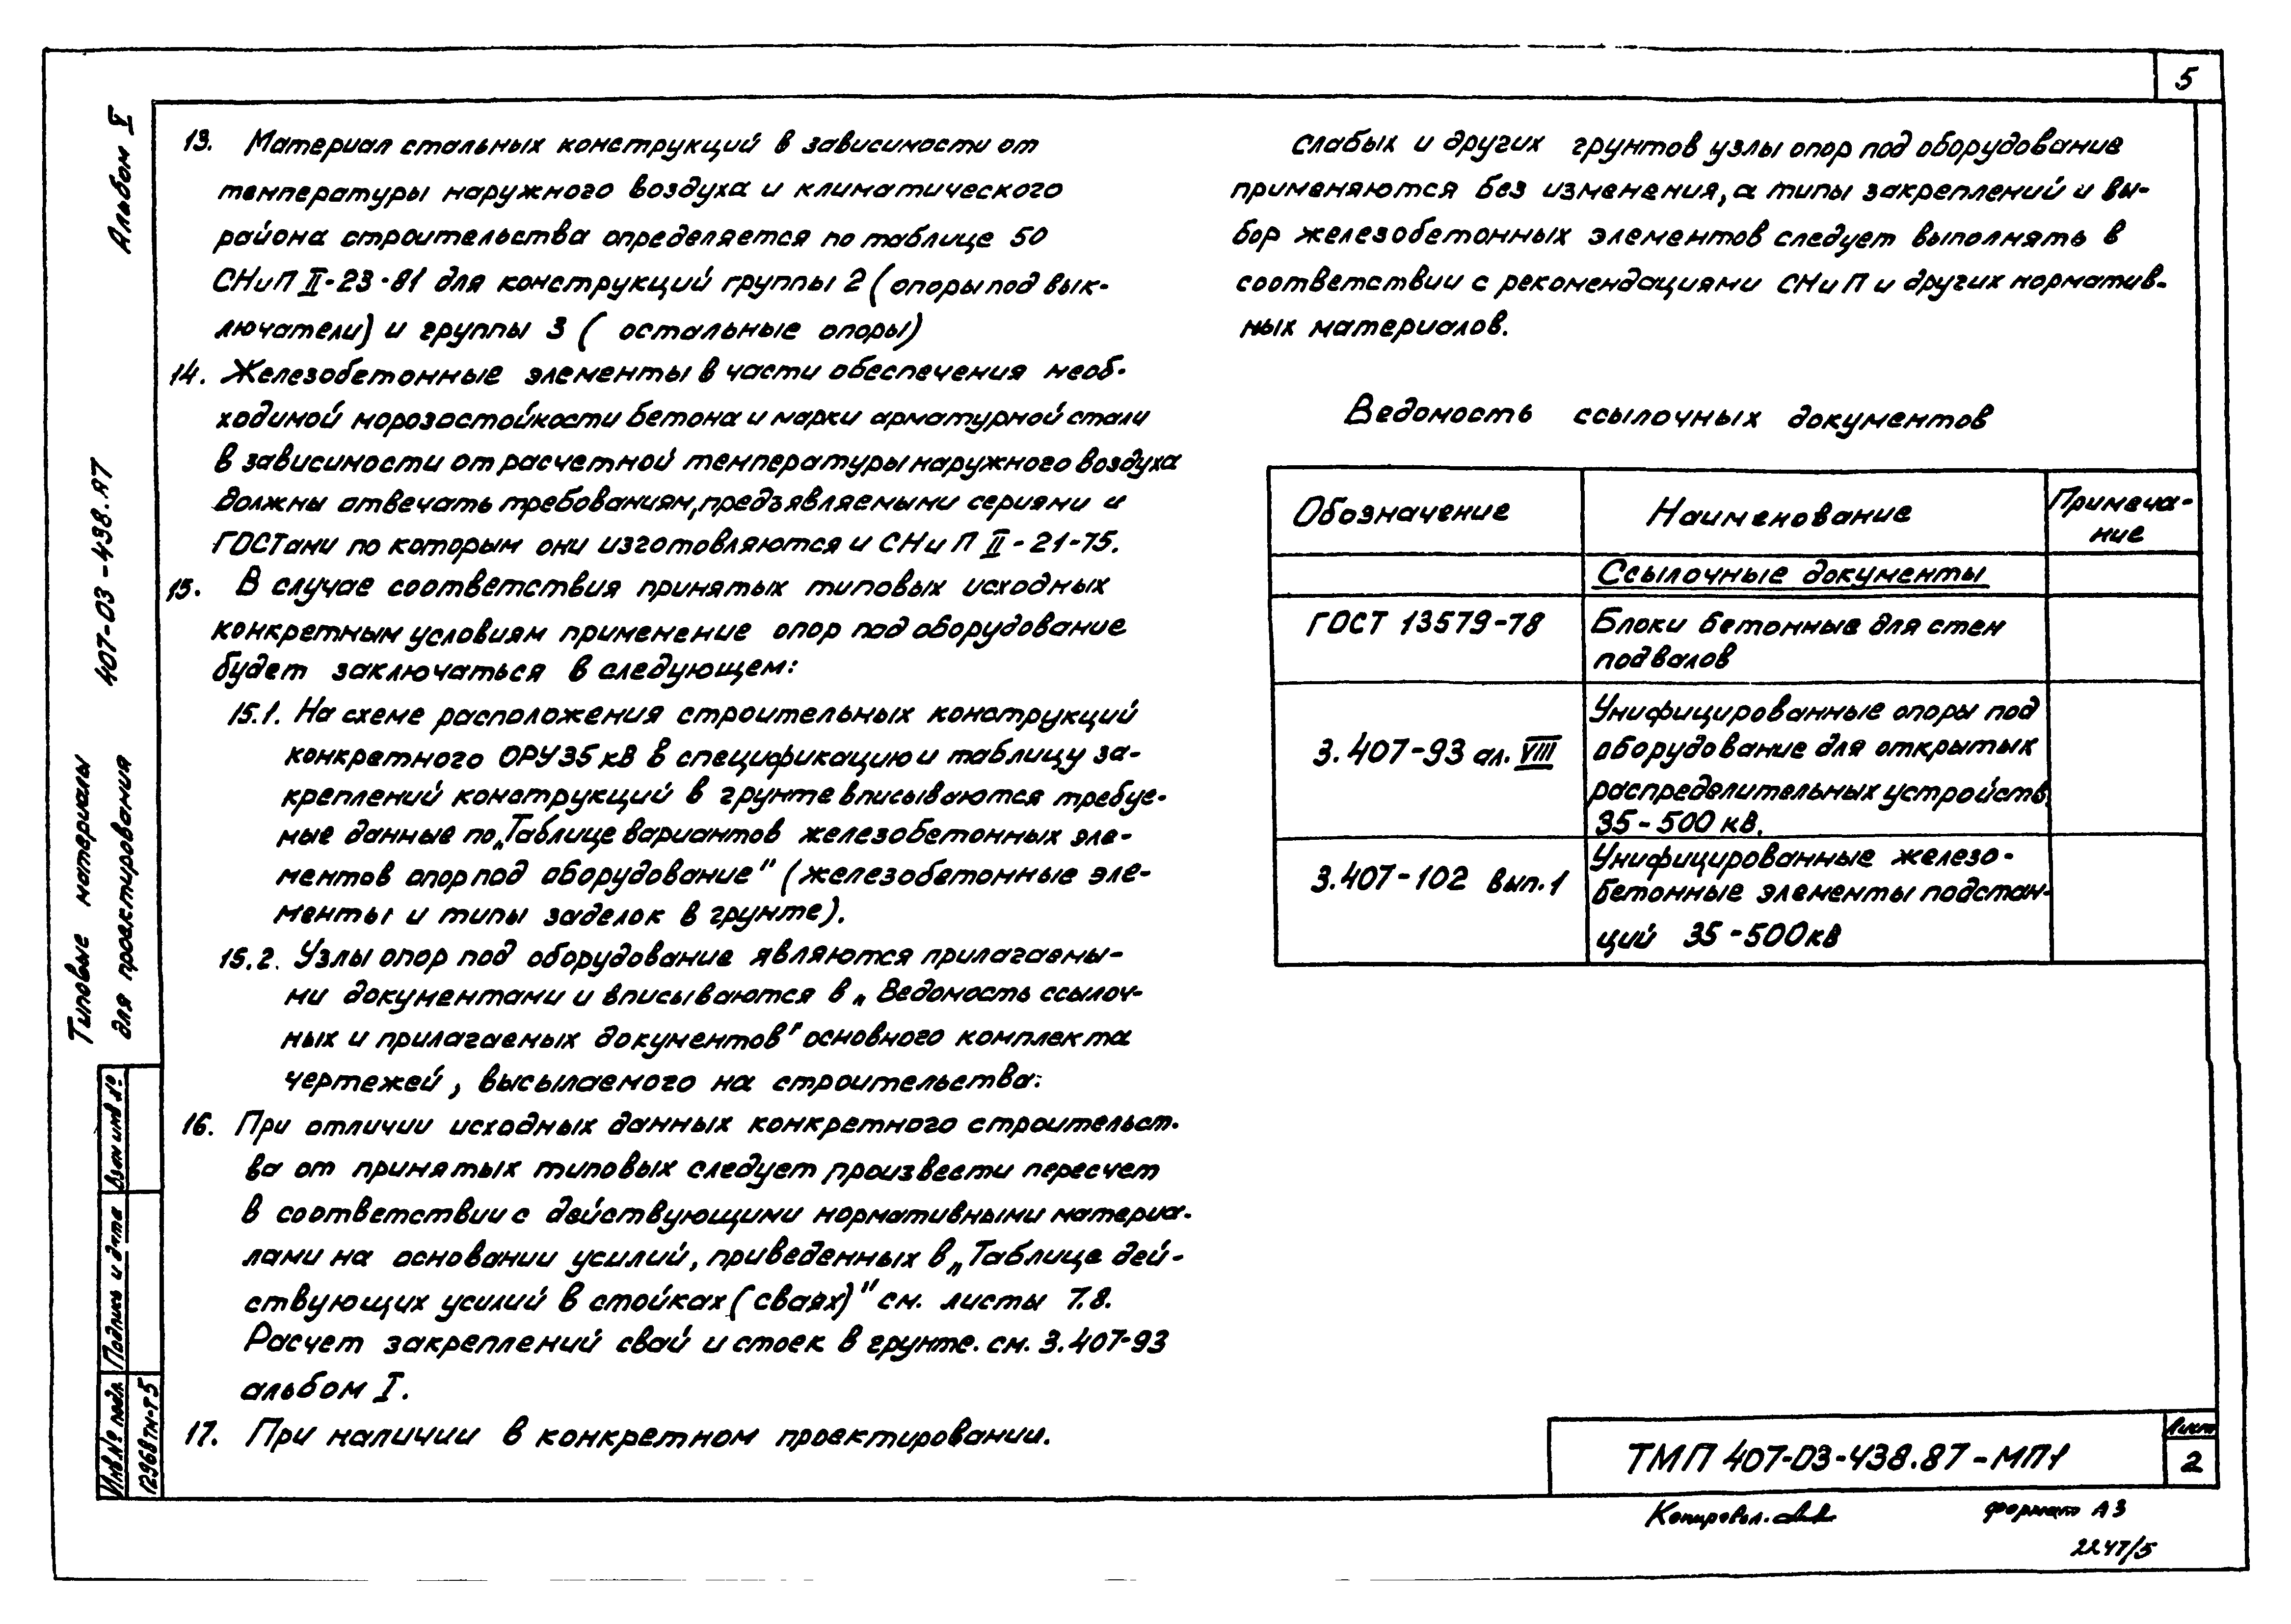 5
13. Материал стальных конструкций в зависимости от
температуры наружного воздуха и климатического
района строительства определяется по таблице 50
СНиП II-23-81 для конструкций группы 2 (опоры под вык-
лючатели) и группы 3 ( остальные опоры)
14. Железобетонные элементы в части обеспечения необ-
ходимой морозостойкости бетона и марки арматурной стали
в зависимости от расчетной температуры наружного воздуха
должны отвечать требованиям, предъявляемыми сериями и
ГОСТами по которым они изготовляются и СНиП II-21-75.
15. В случае соответствия принятых типовых исходных
конкретным условиям применение опор под оборудование
будет заключаться в следующем:
15.1. На схеме расположения строительных конструкций
конкретного ОРУ 35 кВ в спецификацию и таблицу за-
креплений конструкций в грунте вписываются требуе-
мые данные по „Таблице вариантов железобетонных эле-
ментов опор под оборудование" (железобетонные эле-
менты и типы заделок в грунте).
15.2. Узлы опор под оборудование являются прилагаемы-
ми документами и вписываются в „Ведомость ссылоч-
ных и прилагаемых документов" основного комплекта
чертежей, высылаемого на строительства.
16. При отличии исходных данных конкретного строительст-
ва от принятых типовых следует произвести пересчет
в соответствии с действующими нормативными материа-
лами на основании усилий, приведенных в „Таблице дей-
ствующих усилий в стойках (сваях)" см. листы 7.8.
Расчет закреплений свай и стоек в грунте. см. 3.407-93
альбом I.
17. При наличии в конкретном проектировании.
слабых и других грунтов узлы опор под оборудование
применяются без изменения, а типы закреплений и вы-
бор железобетонных элементов следует выполнять в
соответствии с рекомендациями СНиП и других норматив-
ных материалов.
Ведомость ссылочных документов
Обозначение Наименование Примеча-
ние
Ссылочные документы
ГОСТ 13579-78 Блоки бетонные для стен
подвалов
Унифицированные опоры под
3.407-93 ал. VIII оборудование для открытых
распределительных устройств
35-500 кВ.
Унифицированные железо-
3.407-102 вып.1 бетонные элементы подстан-
ций 35-500кВ
Альбом V
407-03-438.87
Типовые материалы
для проектирования
Взам инв №
Подпись и дата
Инв № подл.
12968тм-т5
ТМП 407-03-438.87-МП1
Лист
2
Копировал.
формат А3
2247/5